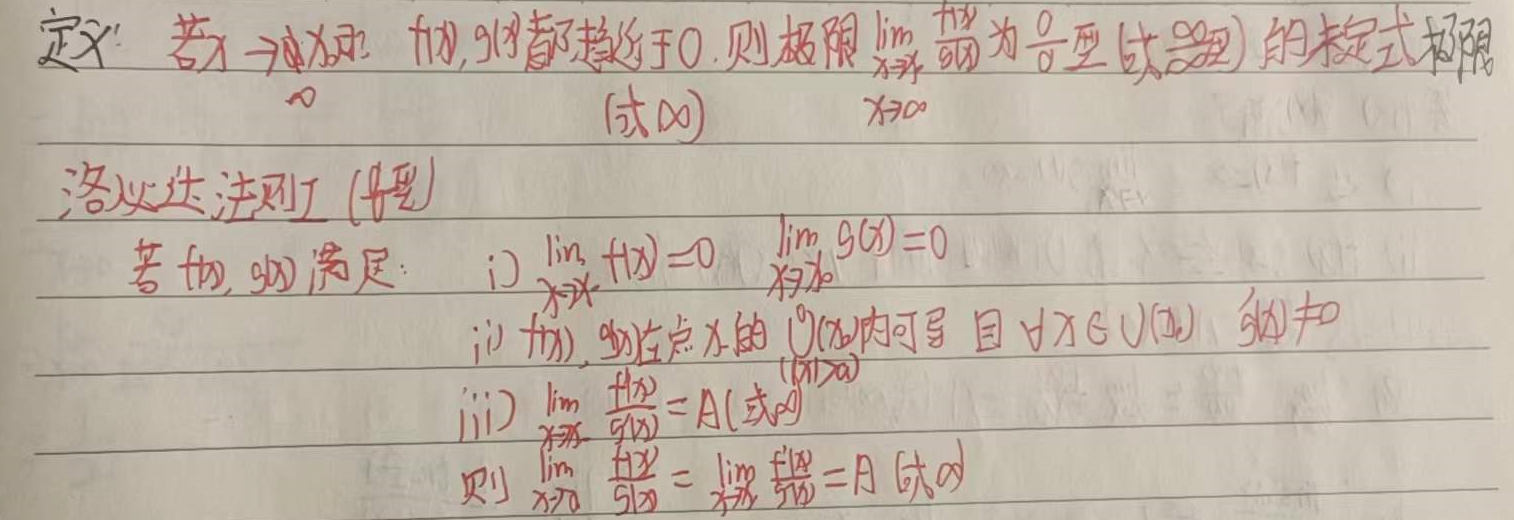 定义: 若x→x₀时 f(x), g(x)都趋近于0. 则极限 lim x→x₀ f(x)/g(x) 为 0/0 型 (或 ∞/∞型) 的未定式极限
∞ (或∞) x→∞
洛必达法则I (0/0型)
若 f(x), g(x) 满足: i) lim x→x₀ f(x)=0 lim x→x₀ g(x)=0
ii) f(x), g(x)在点x₀的 Ů(x₀)内可导 且 ∀x∈U(x₀) g'(x)≠0
(|x|>a)
iii) lim x→x₀ f'(x)/g'(x) = A(或∞)
则 lim x→a f(x)/g(x) = lim x→x₀ f'(x)/g'(x) = A (或∞)